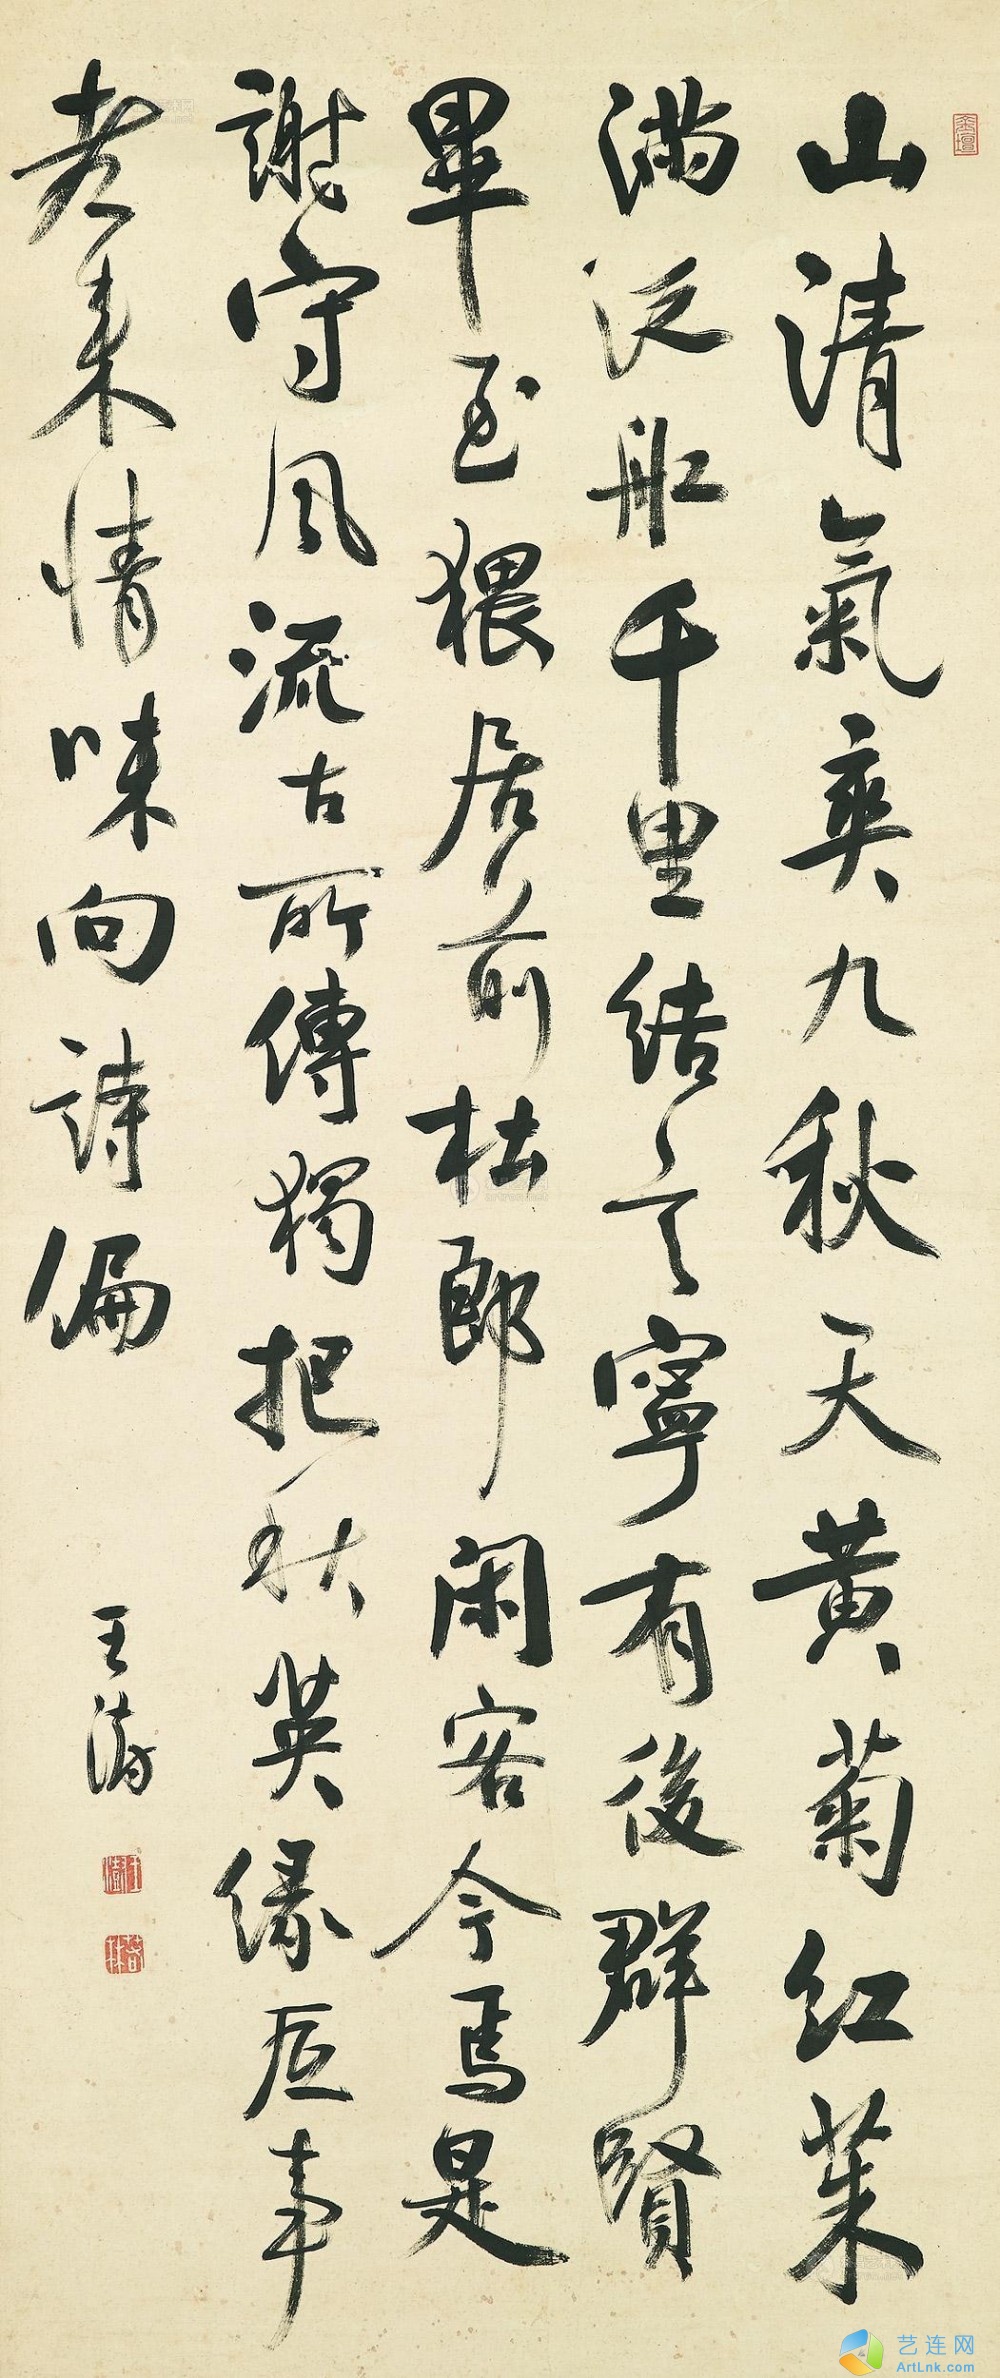 山清氣爽九秋天黃菊紅茱
滿泛船千里結言寧有後群賢
畢至猥居前杜郎閑客今焉是
謝守風流古所傳獨把秋英緣底事
老來情味向詩偏
王澍
金壇
王澍
艺连网
ArtLnk.com